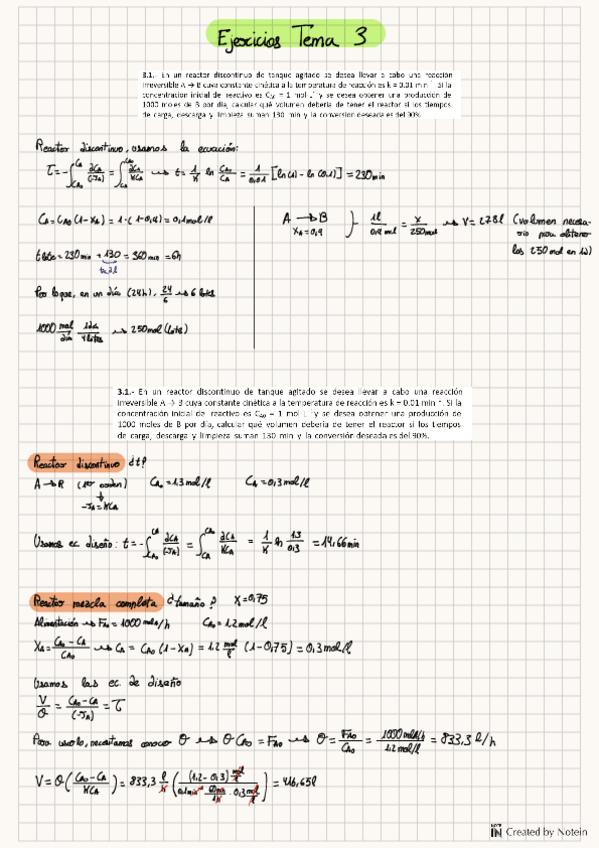 Ejercicios Tema 3
3.1.- En un reactor discontinuo de tanque agitado se desea llevar a cabo una reacción
irreversible A → B cuya constante cinética a la temperatura de reacción es k = 0.01 min⁻¹. Si la
concentración inicial de reactivo es C_A0 = 1 mol L⁻¹ y se desea obtener una producción de
1000 moles de B por día, calcular qué volumen debería de tener el reactor si los tiempos
de carga, descarga y limpieza suman 130 min y la conversión deseada es del 90%.
Reactor discontinuo, usamos la ecuación:
τ = -∫_{CA0}^{CA} dCA/(-rA) = ∫_{CA}^{CA0} dCA/KCA → t = 1/K ln CA0/CA = 1/0,01 [ln(1) - ln(0,1)] = 230 min
CA = CA0 (1-XA) = 1·(1-0,9) = 0,1 mol/l
A → B
XA = 0,9
1l/0,9 mol = x/250 mol → V = 278 l (volumen necesario para obtener los 250 mol en 1d)
230 min + 130 = 360 min = 6h
Por lo que, en un día (24h), 24/6
1000 mol/día → 250 mol
3.1.- En un reactor discontinuo de tanque agitado se desea llevar a cabo una reacción
irreversible A → B cuya constante cinética a la temperatura de reacción es k = 0.01 min⁻¹. Si la
concentración inicial de reactivo es C_A0 = 1 mol L⁻¹ y se desea obtener una producción de
1000 moles de B por día, calcular qué volumen debería de tener el reactor si los tiempos
de carga, descarga y limpieza suman 130 min y la conversión deseada es del 90%.
Reactor discontinuo ¿t?
A → R (1er orden) CA0 = 1,3 mol/l CA = 0,3 mol/l
-rA = KCA
Usamos ec. diseño: t = -∫_{CA0}^{CA} dCA/(-rA) = ∫_{CA}^{CA0} dCA/KCA = 1/K ln 1,3/0,3 = 14,66 min
Reactor mezcla completa ¿tamaño? X = 0,75
Alimentación → FA0 = 1000 mols/h CA0 = 1,2 mol/l
XA = (CA0 - CA)/CA0 → CA = CA0 (1-XA) = 1,2 mol/l (1-0,75) = 0,3 mol/l
Usamos las ec. de diseño
V/θ = (CA0 - CA)/(-rA) = τ
Para usarlo, necesitamos conocer θ → θ CA0 = FA0 → θ = FA0/CA0 = 1000 mols/h / 1,2 mol/l = 833,3 l/h
V = θ((CA0 - CA)/KCA) = 833,3 l/h ((1,2 - 0,3) mol/l / (0,1 min⁻¹ · 60 min/1h · 0,3 mol/l)) = 416,65 l
Created by Notein